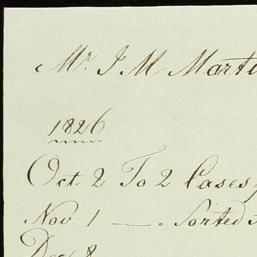 Mr. J M Marti
1826
Oct. 2 To 2 Cases
Nov. 1 — . Sorted
Dec 8